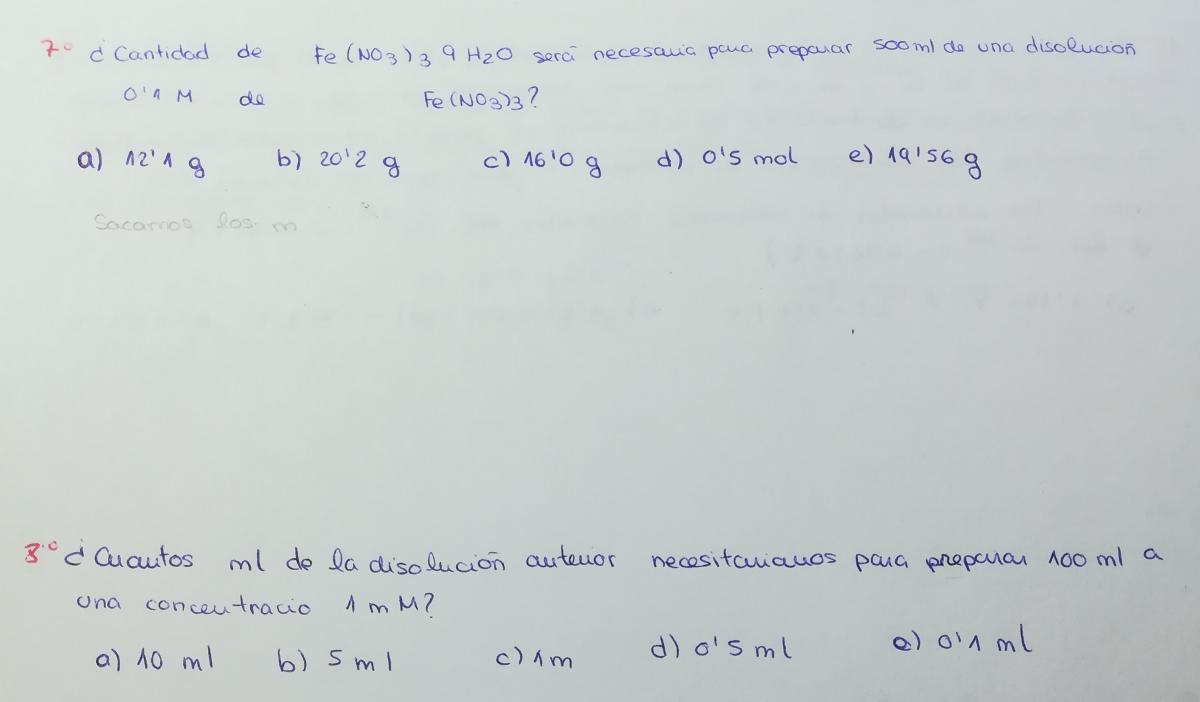 7º ¿Cantidad de Fe(NO3)3 9 H2O será necesaria para preparar 500ml de una disolución
0'1 M de Fe(NO3)3?
a) 12'1 g b) 20'2 g c) 16'0 g d) 0'5 mol e) 19'56 g
Sacamos los m
8º ¿Cuantos ml de la disolución anterior necesitariamos para preparar 100 ml a
una concentracio 1 mM?
a) 10 ml b) 5 ml c) 1m d) 0'5 ml e) 0'1 ml